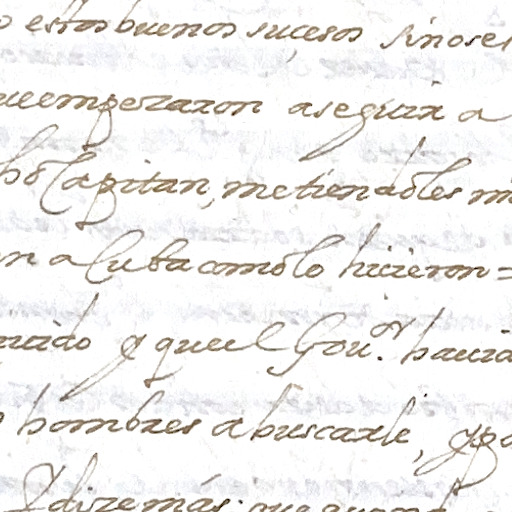 o estos buenos suçesos sinoser
ueempezaron aseguir a
hõ Capitan, metiendoles mi
n a Cuba como lo hicieron =
uido y que el Gouor. hauia
o hombres a buscarle, ypo
Y dize más que quando